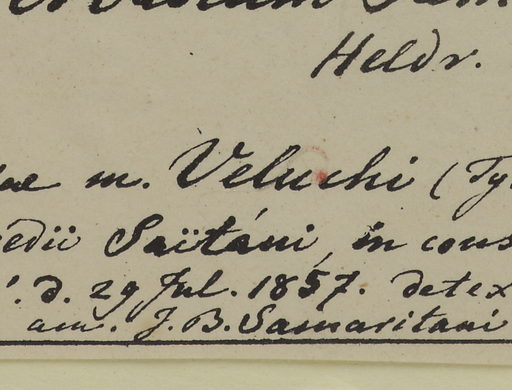 Heldr.
m. Veluchi (Ty
Saïtáni, in cons
d. 29 Jul. 1857. detex
am. J. B. Samaritani